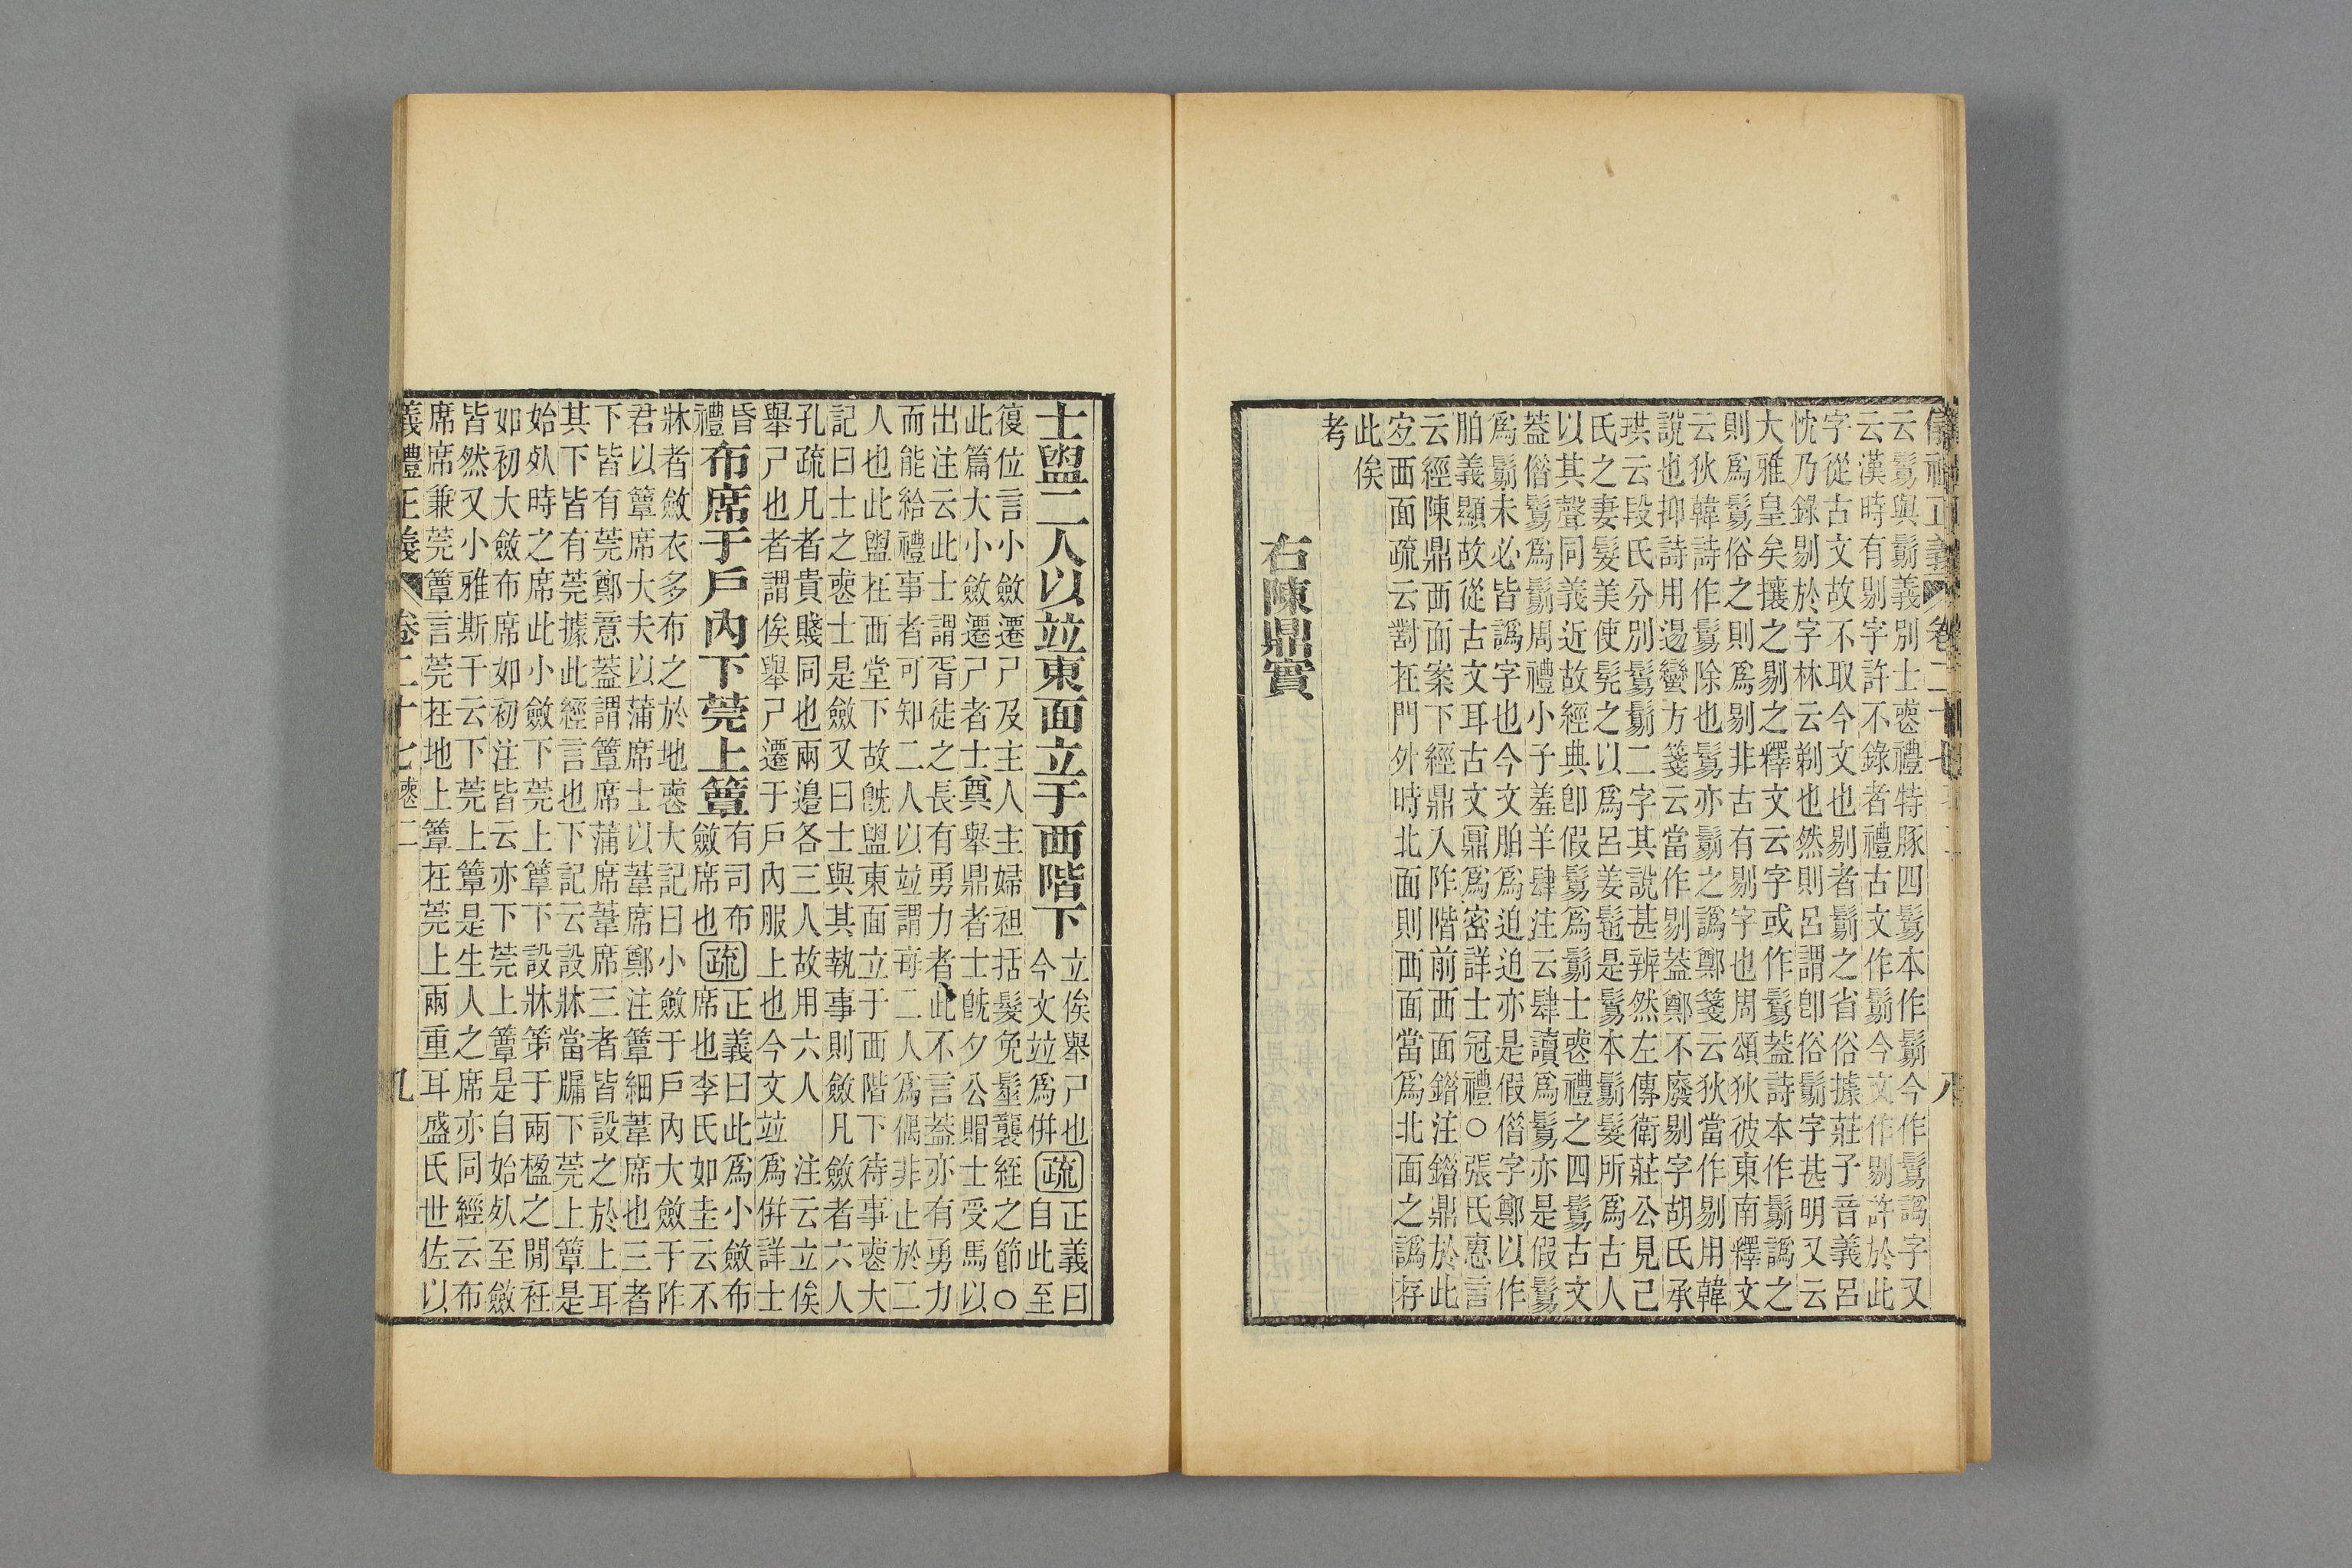 儀禮正義 卷二十七 八
云鬄與鬄義別士喪禮特豚四鬄本作鬄今作鬄譌字又
云漢時有剔字許不錄者禮古文作鬄今文作剔許於此
字從古文故不取今文也剔者鬄之省俗據莊子音義呂
忱乃錄剔於字林云剃也然則呂謂卽俗鬄字甚明又云
大雅皇矣攘之剔之釋文云字或作鬄蓋詩本作鬄譌之
則爲鬄俗之則爲剔非古有剔字也周頌狄彼東南釋文
云狄韓詩作鬄除也鬄亦鬄之譌鄭箋云狄當作剔用韓
說也抑詩用逷蠻方箋云當作剔蓋鄭不廢剔字胡氏承
珙云段氏分別鬄鬄二字其說甚辨然左傳衛莊公見己
氏之妻髮美使髡之以爲呂姜髢是鬄本鬄髮所爲古人
以其聲同義近故經典卽假鬄爲鬄士喪禮之四鬄古文
蓋偕鬄爲鬄周禮小子羞羊肆注云肆讀爲鬄亦是假鬄
爲鬄未必皆譌字也今文胉爲迫迫亦是假偕字鄭以作
胉義顯故從古文耳古文鼏爲密詳士冠禮○張氏惠言
云經陳鼎西面案下經鼎入阼階前西面錯注錯鼎於此
宐西面疏云對在門外時北面則西面當爲北面之譌存
此俟
考
右陳鼎實
士盥二人以竝東面立于西階下
立俟舉尸也
今文竝爲併
疏
正義曰
自此至
復位言小斂遷尸及主人主婦袒括髮免髽襲絰之節○
此篇大小斂遷尸者士奠舉鼎者士旣夕公賵士受馬以
出注云此士謂胥徒之長有勇力者此不言蓋亦有勇力
而能給禮事者可知二人以竝謂每二人爲偶非止於二
人也此盥在西堂下故旣盥東面立于西階下待事喪大
記曰士之喪士是斂又曰士與其執事則斂凡斂者六人
孔疏凡者貴賤同也兩邉各三人故用六人 注云立俟
舉尸也者謂俟舉尸遷于戶內服上也今文竝 爲併詳士
昏
禮
布席于戶內下莞上簟
有司布
斂席也
疏
正義曰此爲小斂布
席也李氏如圭云不
牀者斂衣多布之於地喪大記曰小斂于戶內大斂于阼
君以簟席大夫以蒲席士以葦席鄭注簟細葦席也三者
下皆有莞鄭意蓋謂簟席蒲席葦席三者皆設之於上耳
其下皆有莞據此經言也下記云設牀當牖下莞上簟是
始死時之席此小斂下莞上簟下設牀笫于兩楹之閒衽
如初大斂布席如初注皆云亦下莞上簟是自始死至斂
皆然又小雅斯干云下莞上簟是生人之席亦同經云布
席席兼莞簟言莞在地上簟在莞上兩重耳盛氏世佐以
義禮正義 卷二十七 喪二 九